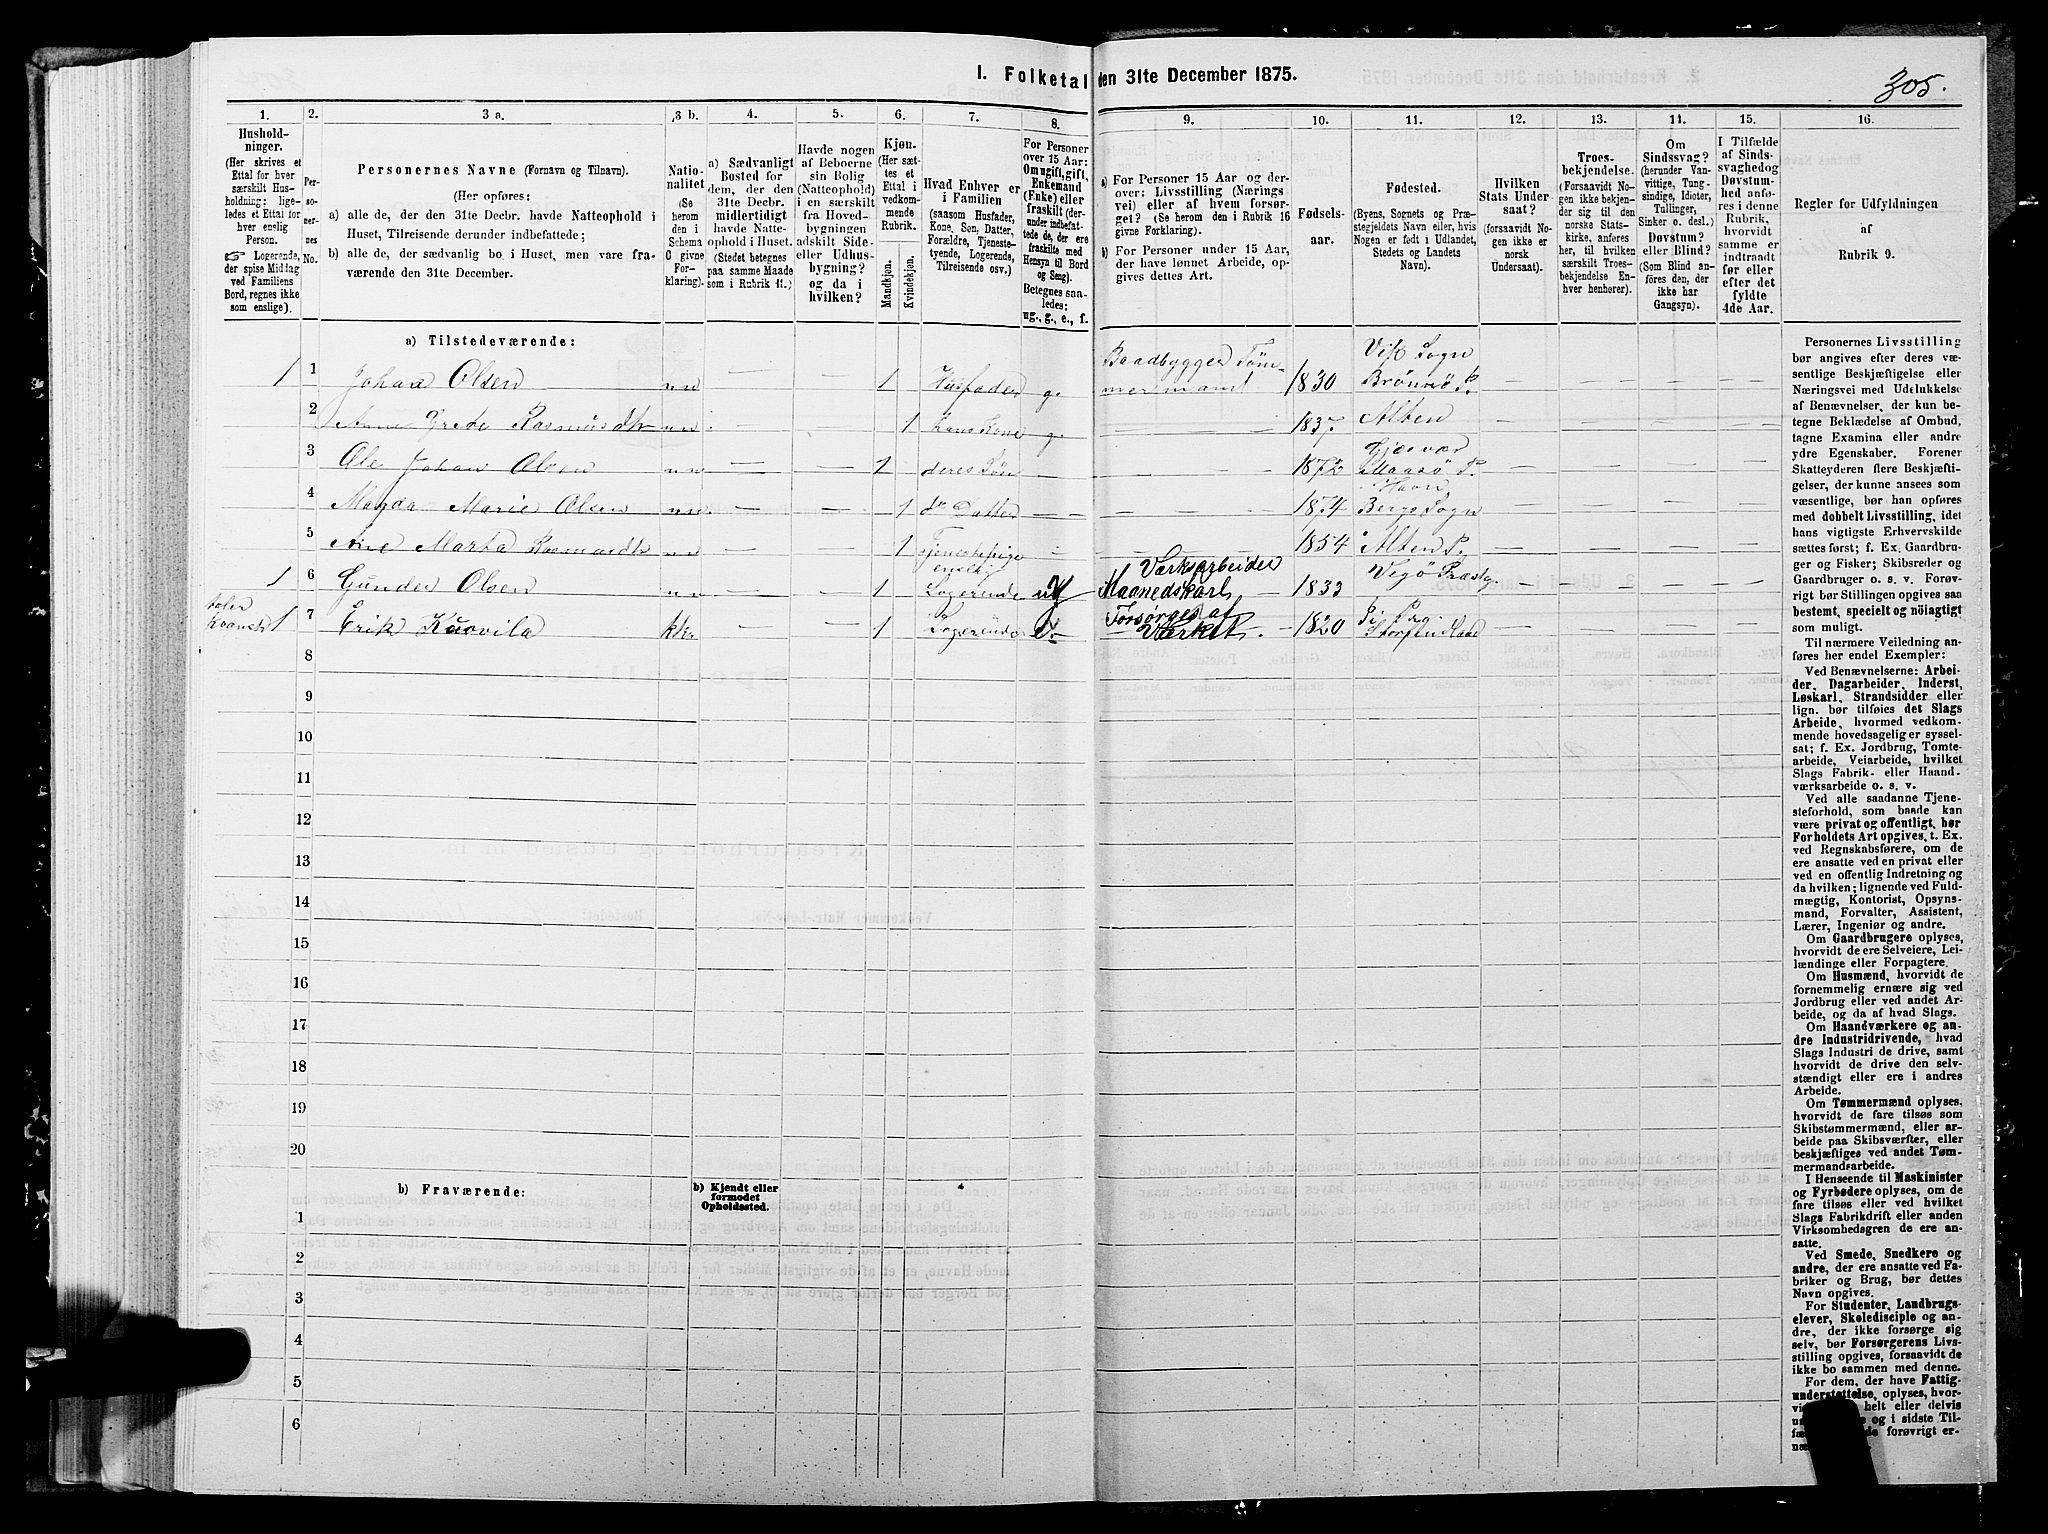 1. Folketal den 31te December 1875.
305.
1.
Hushold-
ninger.
(Her skrives et
Ettal for hver
særskilt Hus-
holdning; lige-
ledes et Ettal for
hver enslig
Person.
☞ Logerende,
der spise Middag
ved Familiens
Bord, regnes ikke
som enslige).
2.
Per-
soner-
nes
No.
3 a.
Personernes Navne (Fornavn og Tilnavn).
(Her opføres:
a) alle de, der den 31te Decbr. havde Natteophold i
Huset, Tilreisende derunder indbefattede;
b) alle de, der sædvanlig bo i Huset, men vare fra-
værende den 31te December.
3 b.
Natio-
nalitet
(Se
herom
den i
Schema
C givne
For-
klaring).
4.
a) Sædvanligt
Bosted for
dem, der den
31te Decbr.
midlertidigt
havde Natte-
ophold i Huset.
(Stedet betegnes
paa samme Maade
som i Rubrik 11.)
5.
Havde nogen
af Beboerne
sin Bolig
(Natteophold)
i en særskilt
fra Hoved-
bygningen
adskilt Side-
eller Udhus-
bygning?
og da i
hvilken?
6.
Kjøn.
(Her sæt-
tes et
Ettal i
vedkom-
mende
Rubrik.
Mandkjøn.
Kvindekjøn.
7.
Hvad Enhver er
i Familien
(saasom Husfader,
Kone, Søn, Datter,
Forældre, Tjeneste-
tyende, Logerende,
Tilreisende osv.)
8.
For Personer
over 15 Aar:
Om ugift, gift,
Enkemand
(Enke) eller
fraskilt (der-
under indbefat-
tede de, der ere
fraskilte med
Hensyn til Bord
og Seng).
Betegnes saa-
ledes:
ug., g., e., f.
9.
a) For Personer 15 Aar og der-
over: Livsstilling (Nærings
vei) eller af hvem forsør-
get? (Se herom den i Rubrik 16
givne Forklaring).
b) For Personer under 15 Aar,
der have lønnet Arbeide, op-
gives dettes Art.
10.
Fødsels-
aar.
11.
Fødested.
(Byens, Sognets og Præ-
stegjeldets Navn eller, hvis
Nogen er født i Udlandet,
Stedets og Landets
Navn).
12.
Hvilken
Stats Under
saat?
(forsaavidt No-
gen ikke er
norsk
Undersaat).
13.
Troes-
bekjendelse.
(Forsaavidt No-
gen ikke bekjen-
der sig til den
norske Stats-
kirke, anføres
her, til hvilken
særskilt Troes-
bekjendelse En-
hver henhører).
14.
Om
Sindssvag?
(herunder Van-
vittige, Tung-
sindige, Idioter,
Tullinger,
Sinker o. desl.)
Døvstum?
eller Blind?
(Som Blind an-
føres den, der
ikke har
Gangsyn).
15.
I Tilfælde
af Sinds-
svaghedog
Døvstum-
hed anfø-
res i denne
Rubrik,
hvorvidt
samme er
indtraadt
før eller
efter det
fyldte
4de Aar.
16.
Regler for Udfyldningen
af
Rubrik 9.
a) Tilstedeværende:
1 1 Johan Olsen nn — — 1 Husfader g. Baadbygger Tøm-
mermand 1830 Vik Sogn
Brønnø P. — — — —
2 Anne Grete Rasmusdtr nn — — 1 hans Kone g. 1837 Alten — — — —
3 Ole Johan Olsen nn — — 1 deres Søn — 1872 Gjesvær
Maasø P. — — — —
4 Magda Marie Olsen nn — — 1 do Datter — — 1874 Havn
Bergs Sogn — — — —
5 Ane Marta Rasmusdtr nn — — 1 Tjenestepige — 1854 Alten P. — — — —
1 6 Gunder Olsen nn — — 1 enslig
Logerende ug Værksarbeider
Maanedskarl 1833 Vegø Præstg. — — — —
taler
kvænsk 1 7 Erik Kuovila kkr — — 1 Logerende e. Forsørges af
Værket. 1820 — — — —
8
9
10
11
12
13
14
15
16
17
18
19
20
b) Fraværende:
b) Kjendt eller
formodet
Opholdssted.
1
2
3
4
5
6
Personernes Livsstilling
bør angives efter deres væ-
sentlige Beskjæftigelse eller
Næringsvei med Udelukkelse
af Benævnelser, der kun be-
tegne Beklædelse af Ombud,
tagne Examina eller andre
ydre Egenskaber. Forener
Skatteyderen flere Beskjæfti-
gelser, der kunne ansees som
væsentlige, bør han opføres
med dobbelt Livsstilling, idet
hans vigtigste Erhvervskilde
sættes først; f. Ex. Gaardbru-
ger og Fisker; Skibsreder og
Gaardbruger o. s. v. Forøv-
rigt bør Stillingen opgives saa
bestemt, specielt og nöiagtigt
som muligt.
Til nærmere Veiledning an-
føres her endel Exempler:
Ved Benævnelserne: Arbei-
der, Dagarbeider, Inderst,
Løskarl, Strandsidder eller
lign. bør tilføies det Slags
Arbeide, hvormed vedkom-
mende hovedsagelig er syssel-
sat; f. Ex. Jordbrug, Tomte-
arbeide, Veiarbeide, hvilket
Slags Fabrik- eller Haand-
værksarbeide o. s. v.
Ved alle saadanne Tjene-
steforhold, som baade kan
være privat og offentligt, bør
Forholdets Art opgives, t. Ex.
ved Regnskabsførere, om de
ere ansatte ved en privat eller
ved en offentlig Indretning og
da hvilken; lignende ved Fuld-
mægtig, Kontorist, Opsyns-
mand, Forvalter, Assistent,
Lærer, Ingeniør og andre.
Om Gaardbrugere oplyses,
hvorvidt de ere Selveiere, Lei-
lændinge eller Forpagtere.
Om Husmænd, hvorvidt de
fornemmelig ernære sig ved
Jordbrug eller ved andet Ar-
beide, og da af hvad Slags.
Om Haandværkere og an-
dre Industridrivende, hvad
Slags Industri de drive, samt
hvorvidt de drive den selv-
stændigt eller ere i andres
Arbeide.
Om Tømmermænd oplyses,
hvorvidt de fare tilsøs som
Skibstømmermænd, eller ar-
beide paa Skibsværfter, eller
beskjæftiges ved andet Tøm-
mermandsarbeide.
I Henseende til Maskinister
og Fyrbødere oplyses, om de
fare tilsøs eller ved hvilket
Slags Fabrikdrift eller anden
Virksomhedsgren de ere an-
satte.
Ved Smede, Snedkere og
andre, der ere ansatte ved Fa-
briker og Brug, bør dettes
Navn opgives.
For Studenter, Landbrugs-
elever, Skoledisciple og an-
dre, der ikke forsørge sig
selv, bør Forsørgerens Livs-
stilling opgives, forsaavidt de
ikke bo sammen med denne.
For dem, der have Fattig-
understøttelse, oplyses, hvor-
helt eller delvis
og i sidste Til-
forøvrigt er-